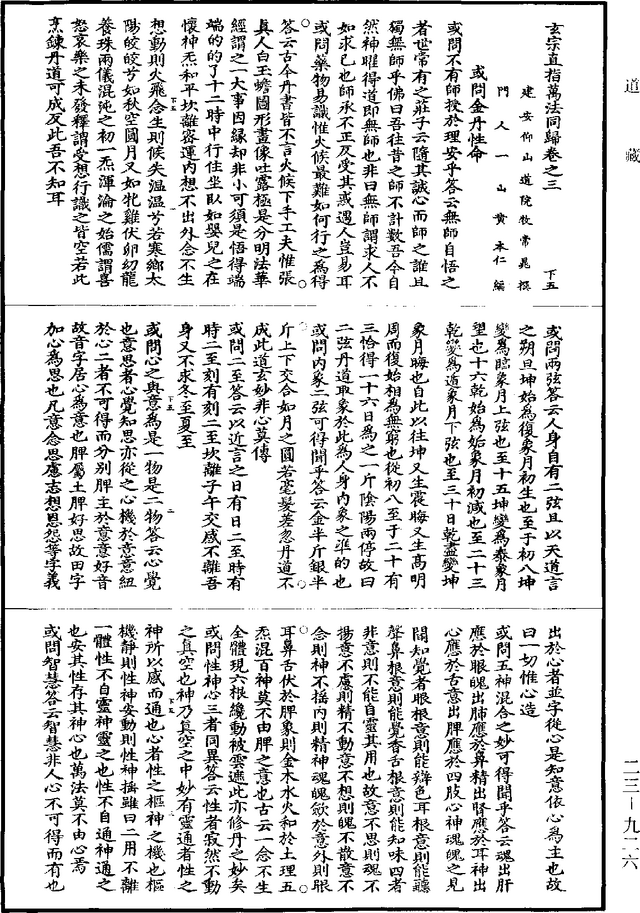 道藏
玄宗直指萬法同歸卷之三　下五
建安仰山道院牧常晁撰
門人一山黃本仁編
或問金丹性命
或問不有師授於理安乎答云無師自悟之
者世常有之莊子云隨其誠心而師之誰且
獨無師乎佛曰吾往昔之師不計數吾今自
然神曜得道即無師也非曰無師謂求人不
如求己也師承不正反受其惑遇人豈易耳
或問藥物易識惟火候最難如何行之為得
答云古今丹書皆不言火候下手工夫惟張
真人白玉蟾圖形畫像吐露極是分明法華
經謂之一大事因緣却非小可須是悟得端
端的的了十二時中行住坐臥如嬰兒之在
懷神炁和平坎離密運內想不出外念不生
想動則火飛念生則候失溫溫兮若寒鄉太
陽皎皎兮如秋空圓月又如牝雞伏卵幼龍
養珠兩儀混沌之初一炁渾淪之始儒謂喜
怒哀樂之未發釋謂受想行識之皆空若此
烹鍊丹道可成反此吾不知耳
或問兩弦答云人身自有二弦且以天道言
之朔旦坤始為復象月初生也至于初八坤
變為臨象月上弦也至十五坤變為泰象月
望也十六乾始為姤象月初減也至二十三
乾變為遁象月下弦也至三十日乾盡變坤
象月晦也自此以往坤又生震晦又生高明
周而復始相為無窮也從初八至于二十有
三恰得一十六日為之一斤陰陽兩停故曰
二弦丹道取象於此為人身內象之準的也
或問內象二弦可得聞乎答云金半斤銀半
斤上下交合如月之圓若毫髮差忽丹道不
成此道玄妙非心莫傳
或問二至答云以近言之日有日二至時有
時二至刻有刻二至坎離子午交感不離吾
身又不求冬至夏至
或問心之與意為是一物是二物答云心覺
也意思者心覺知思亦從之心機於意意紐
於心二者不可得而分別脾主於意意好音
故音字居心為意也脾屬土脾好思故田字
加心為思也凡意念思慮志想恩怨等字義
出於心者並字從心是知意依心為主也故
曰一切惟心造
或問五神混合之妙可得聞乎答云魂出肝
應於眼魄出肺應於鼻精出腎應於耳神出
心應於舌意出脾應於四肢心神魂魄之見
聞知覺者眼根意則能辯色耳根意則能聽
聲鼻根意則能覺香舌根意則能知味四者
非意則不能自靈其用也故意不思則魂不
揚意不慮則精不動意不想則魄不散意不
念則神不搖內則精神魂魄斂於意外則眼
耳鼻舌伏於脾象則金木水火和於土理五
炁混百神莫不由脾之意也古云一念不生
全體現六根纔動被雲遮此亦修丹之妙矣
或問性神心三者同異答云性者寂然不動
之真空也神乃真空之中妙有靈通者性之
神所以感而通也心者性之樞神之機也樞
機靜則性神安動則性神搖雖曰二用不離
一體性不自靈神靈之也性不自通神通之
也安其性存其神心也萬法莫不由心焉
或問智慧答云智慧非人心不可得而有也
二三－九二六